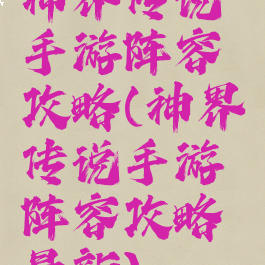 神界传说
手游阵容
攻略(神界
传说手游
阵容攻略
最新)